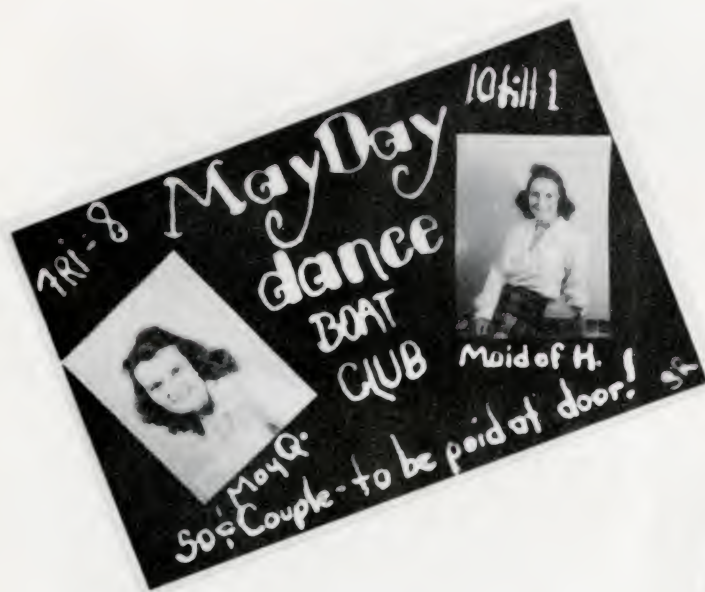 Fri-8
May Day
10 till 1
dance
BOAT
CLUB
Maid of H.
May Q.
50¢ Couple-to be paid at door!